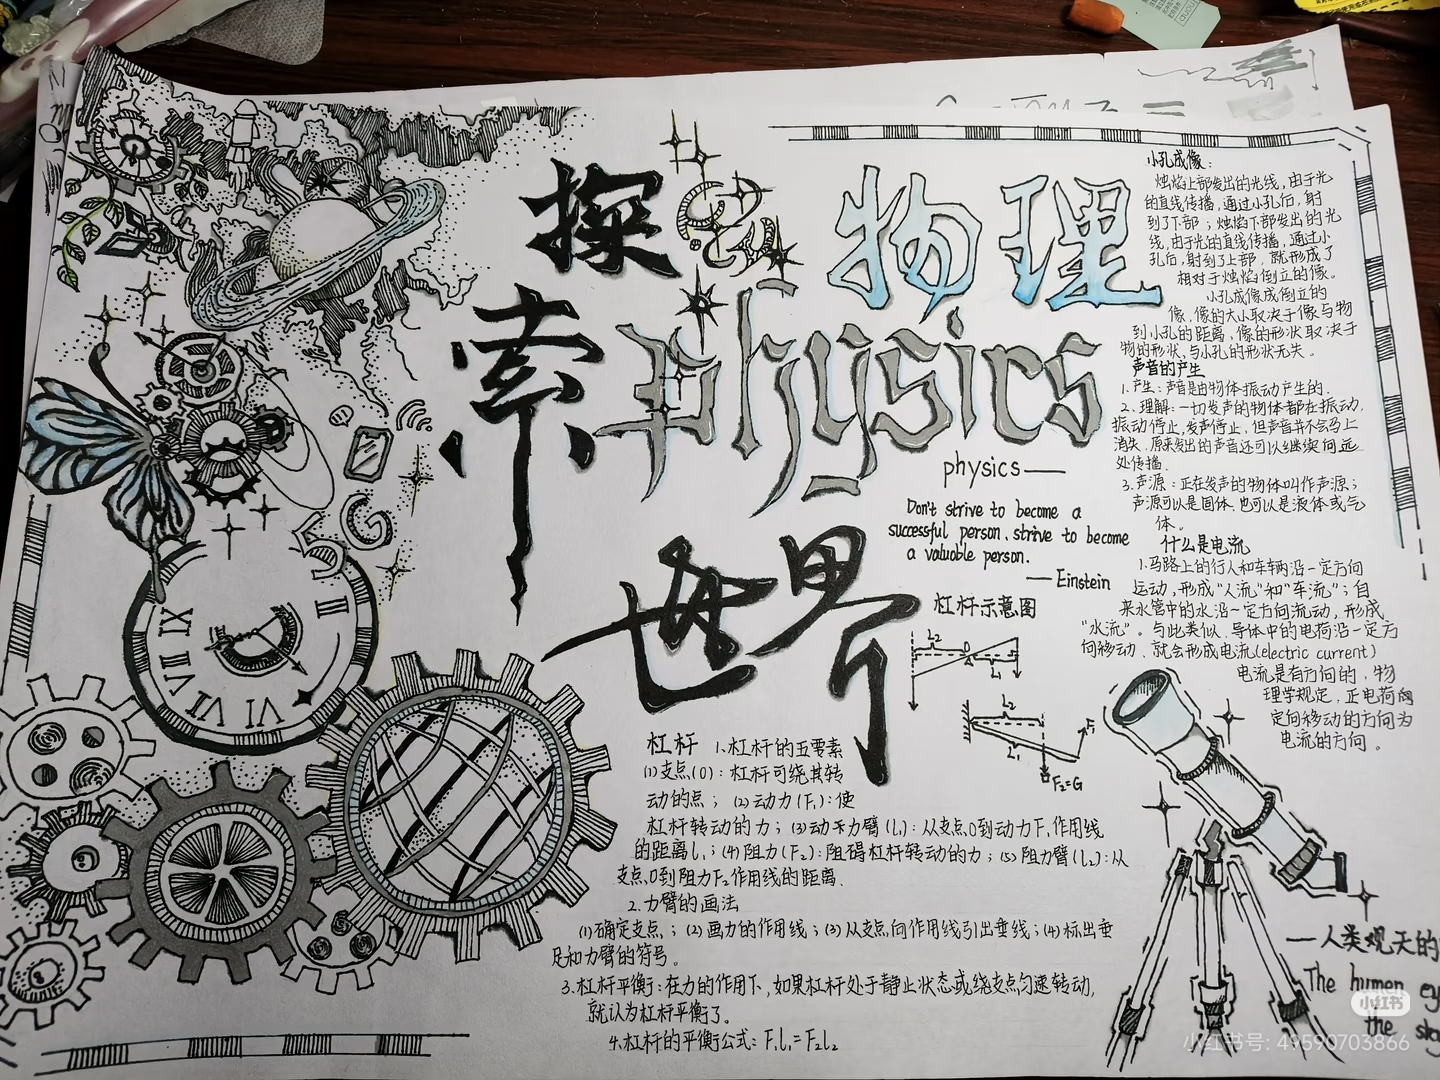 探
索
物理
physics
世界
physics——
Don't strive to become a
successful person, strive to become
a valuable person.
——Einstein
小孔成像:
烛焰上部发出的光线,由于光
的直线传播,通过小孔后,射
到了下部;烛焰下部发出的光
线,由于光的直线传播,通过小
孔后,射到了上部,就形成了
相对于烛焰倒立的像。
小孔成像成倒立的
像,像的大小取决于像与物
到小孔的距离,像的形状取决于
物的形状,与小孔的形状无关。
声音的产生
1.产生:声音是由物体振动产生的.
2.理解:一切发声的物体都在振动,
振动停止,发声停止,但声音并不会马上
消失,原来发出的声音还可以继续向远
处传播.
3.声源:正在发声的物体叫作声源;
声源可以是固体,也可以是液体或气
体。
什么是电流
1.马路上的行人和车辆沿一定方向
运动,形成“人流”和“车流”;自
来水管中的水沿一定方向流动,形成
“水流”。与此类似,导体中的电荷沿一定方
向移动,就会形成电流(electric current)
电流是有方向的,物
理学规定,正电荷
定向移动的方向为
电流的方向。
杠杆示意图
L₂
L₁
L₂
L₁
F₁
F₂=G
杠杆 1.杠杆的五要素
(1)支点(O):杠杆可绕其转
动的点;(2)动力(F₁):使
杠杆转动的力;(3)动力臂(l₁):从支点O到动力F₁作用线
的距离l₁;(4)阻力(F₂):阻碍杠杆转动的力;(5)阻力臂(l₂):从
支点O到阻力F₂作用线的距离.
2.力臂的画法
(1)确定支点;(2)画力的作用线;(3)从支点向作用线引出垂线;(4)标出垂
足和力臂的符号。
3.杠杆平衡:在力的作用下,如果杠杆处于静止状态或绕支点匀速转动,
就认为杠杆平衡了。
4.杠杆的平衡公式:F₁l₁=F₂l₂
5G
II
VI
VII
VIII
XI
——人类观天的
The human ey
the sky
小红书
小红书号: 49590703866